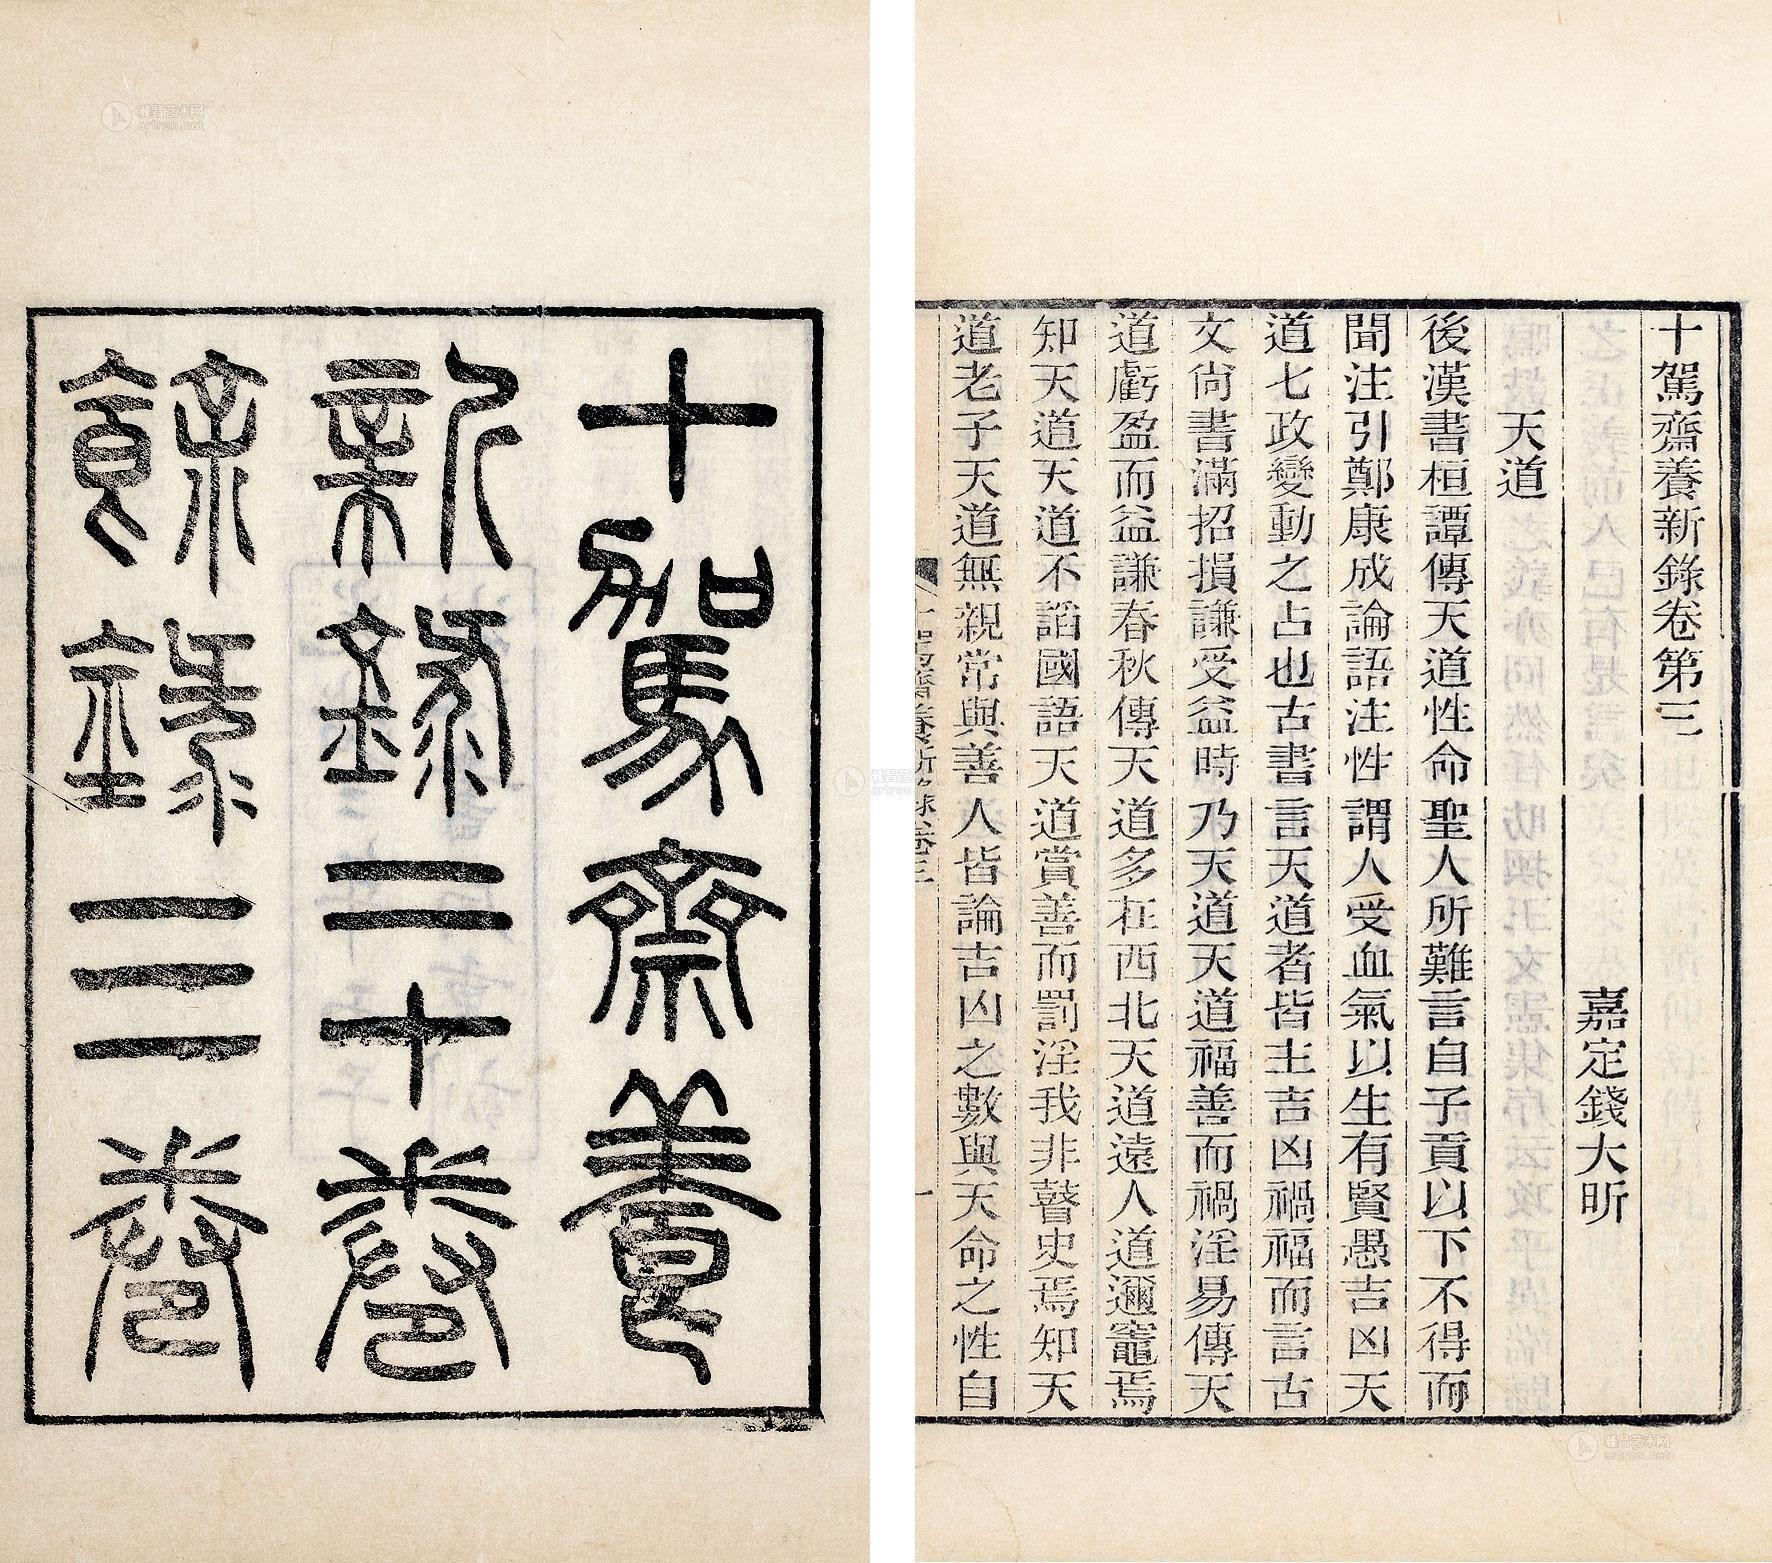 十駕齋養
新錄二十卷
餘錄三卷
十駕齋養新錄卷第三
嘉定錢大昕
天道
後漢書桓譚傳天道性命聖人所難言自子貢以下不得而
聞注引鄭康成論語注性謂人受血氣以生有賢愚吉凶天
道七政變動之占也古書言天道者皆主吉凶禍福而言古
文尙書滿招損謙受益時乃天道天道福善而禍淫易傳天
道虧盈而益謙春秋傳天道多在西北天道遠人道邇竈焉
知天道天道不謟國語天道賞善而罰淫我非瞽史焉知天
道老子天道無親常與善人皆論吉凶之數與天命之性自
雅昌艺术网
artron.net
雅昌艺术网
artron.net